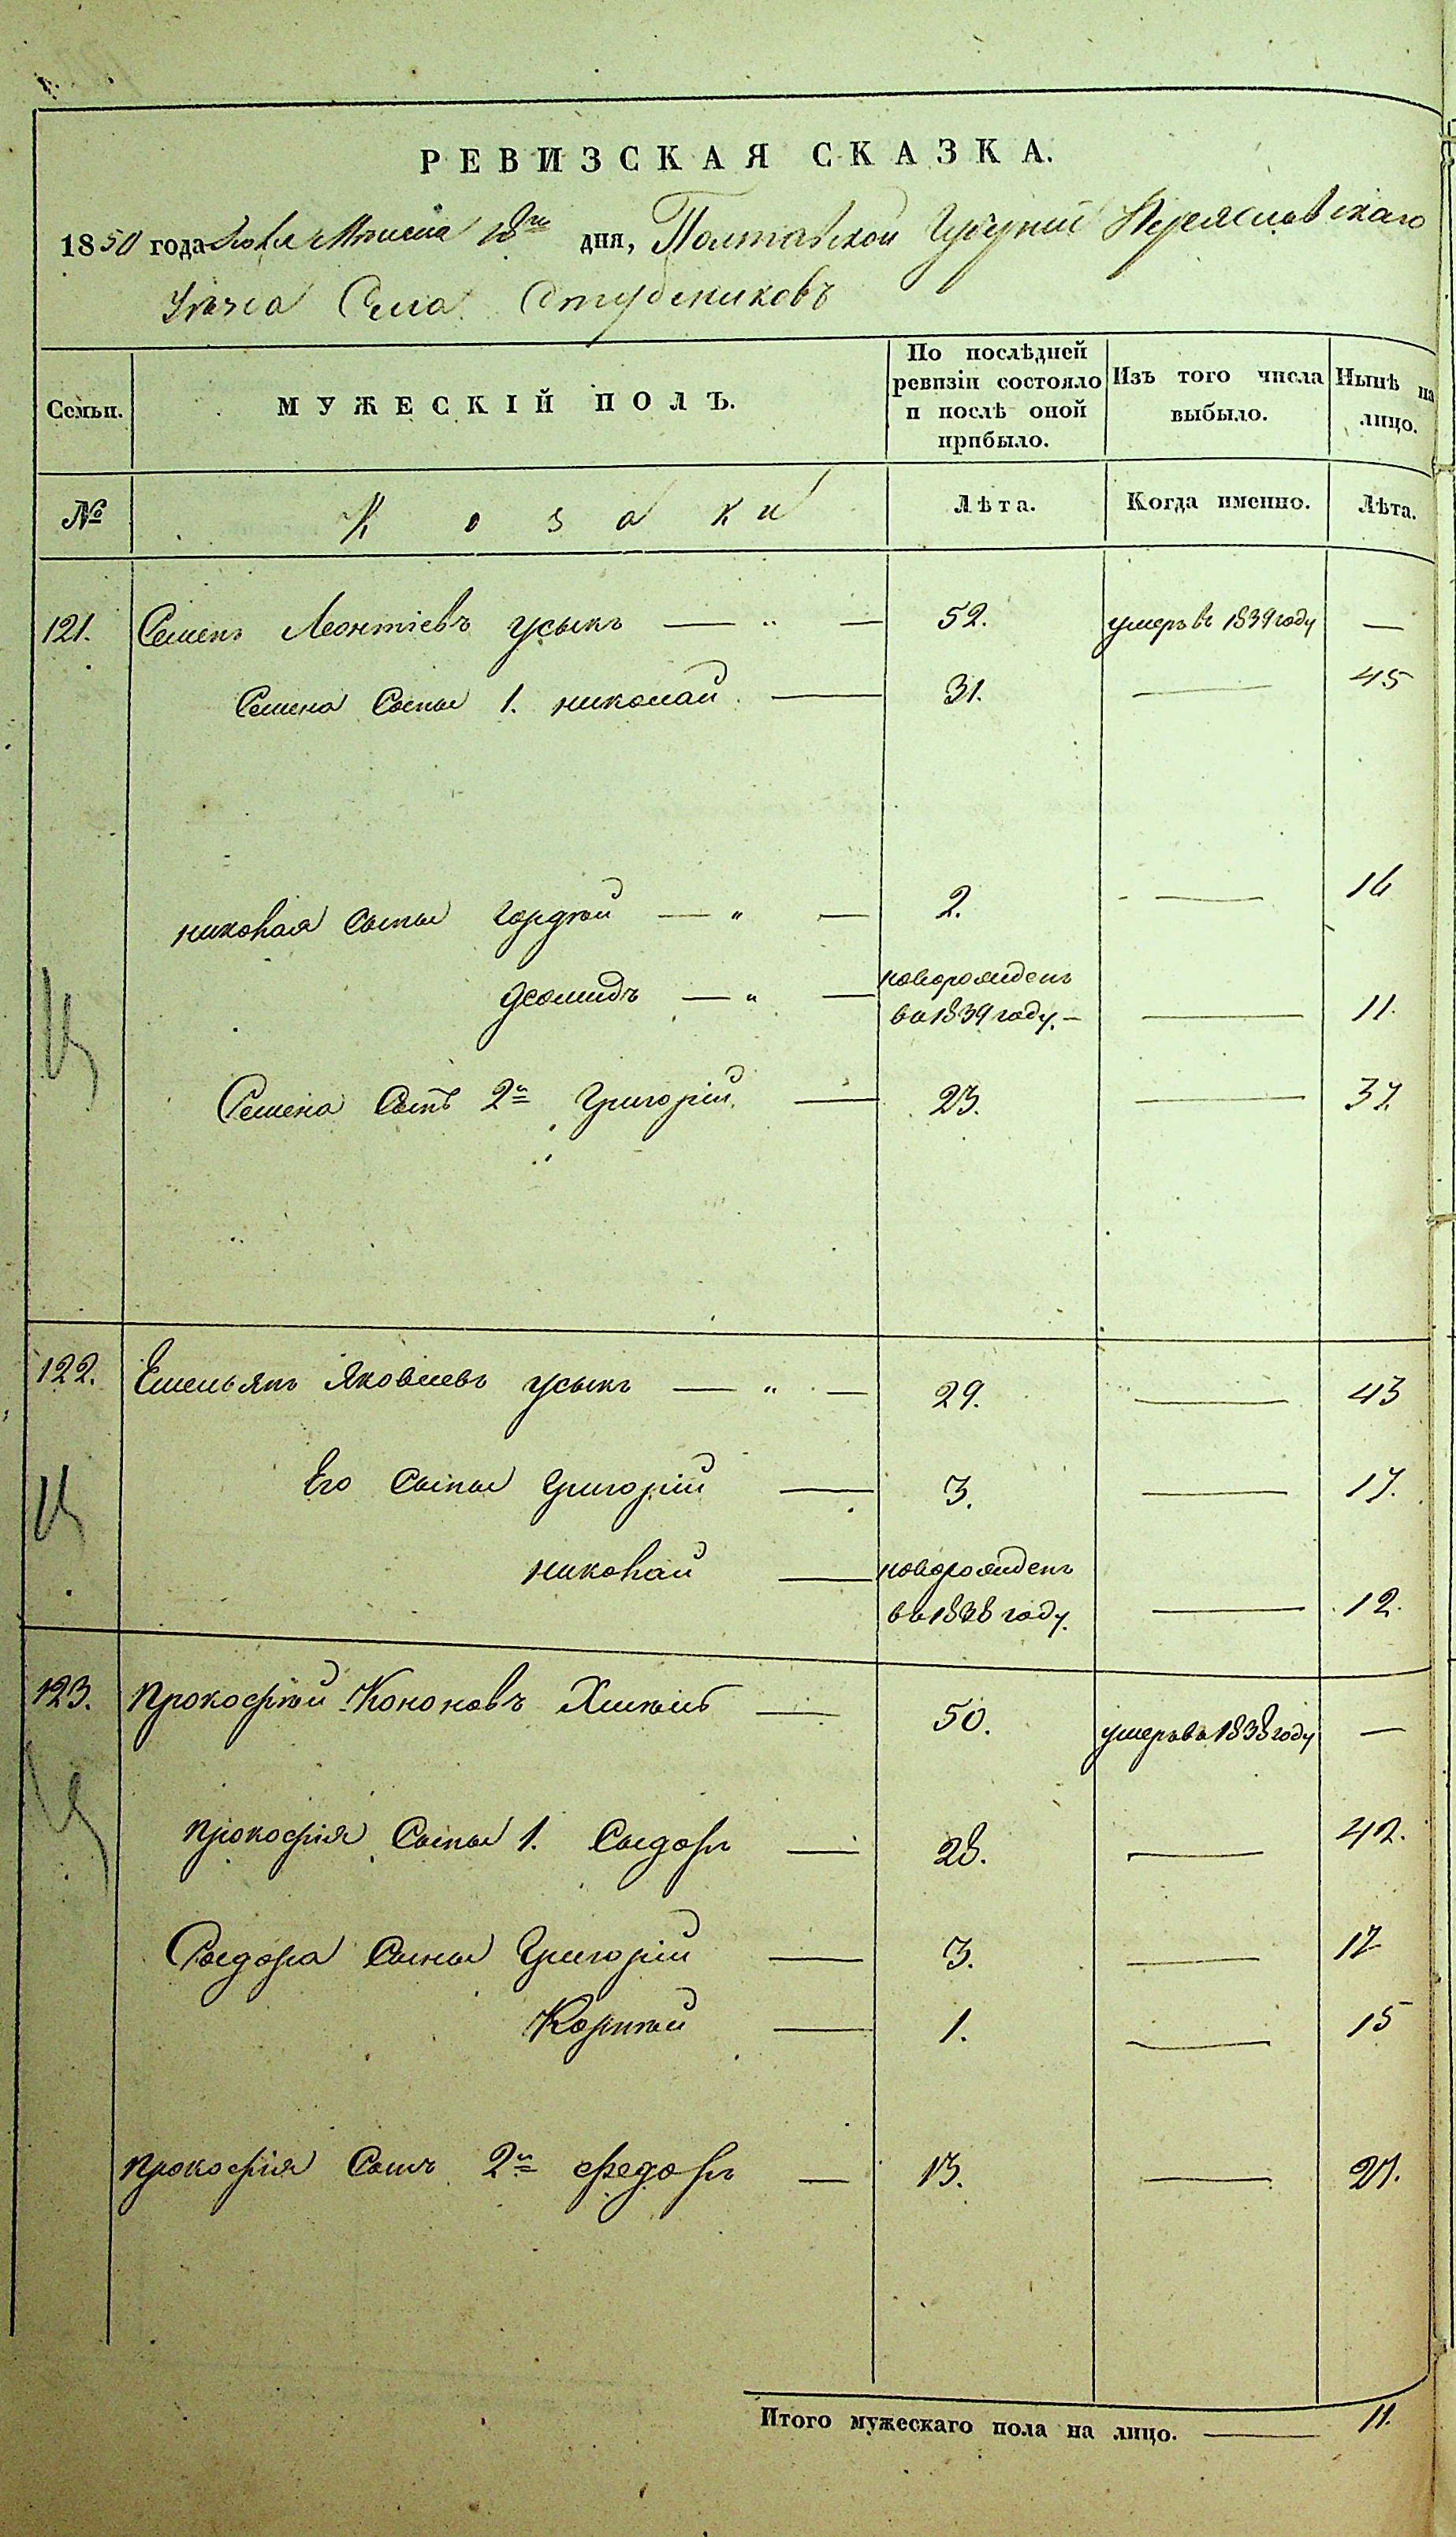 РЕВИЗСКАЯ СКАЗКА.
1850 года Июля Месяца 18го дня, Полтавской Губернии Переяславскаго
Уезда Села Студениковъ
Семьи. МУЖЕСКІЙ ПОЛЪ. По послѣдней ревизіи состояло и послѣ оной прибыло. Изъ того числа выбыло. Нынѣ на лицо.
№ Козаки Лѣта. Когда именно. Лѣта.
121. Семенъ Леонтіевъ Усыкъ — " — 52. умеръ въ 1839 году —
Семена Сыны 1. николай — 31. — 45
николая Сыны Гордѣй — " — 2. — 16
Диомидъ — " — новорожденъ
въ 1839 году. — — 11.
Семена Сынъ 2й Григорій — 23. — 37.
122. Емельянъ Яковлевъ Усыкъ — " — 29. — 43
Его Сыны Григорій — 3. — 17.
николай — новорожденъ
въ 1838 году. — 12.
123. Прокофій Кононовъ — 50. умеръ въ 1838 году —
Прокофія Сыны 1. Сыдоръ — 28. — 42.
Сыдора Сыны Григорій — 3. — 17
Корнѣй — 1. — 15
Прокофія Сынъ 2й Федоръ — 13. — 27.
Итого мужескаго пола на лицо. — 11.